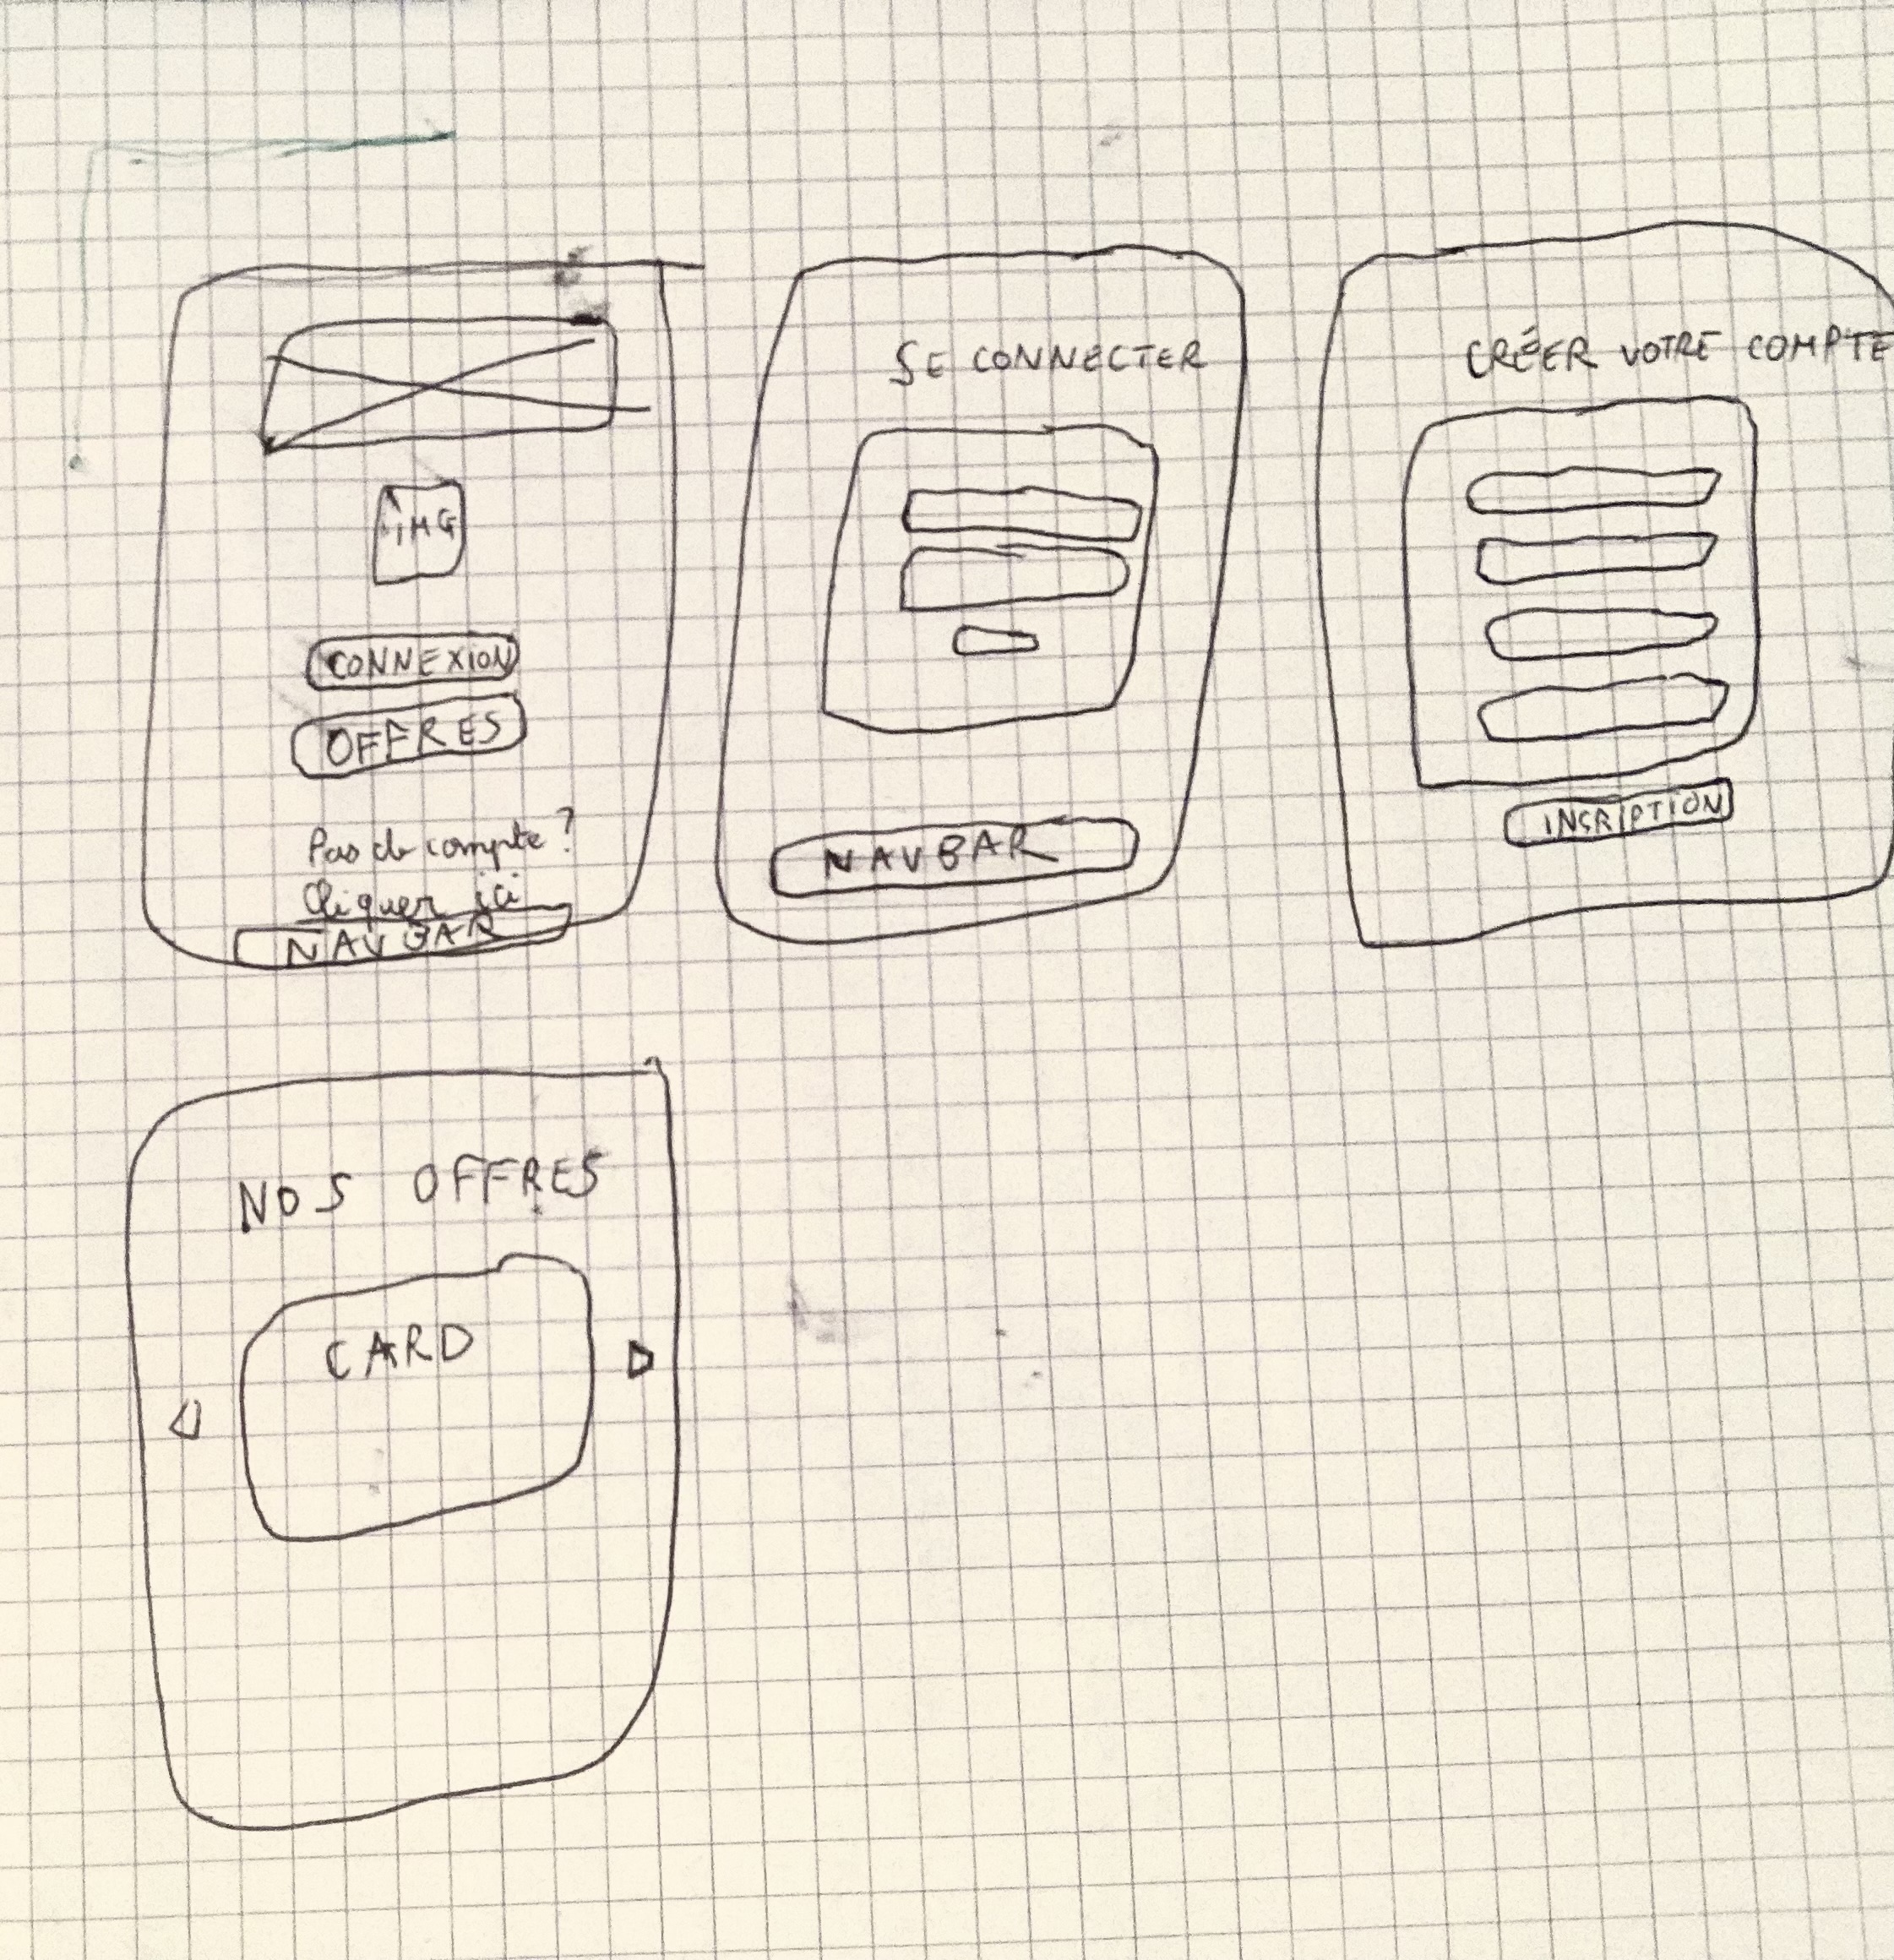 iMG
CONNEXION
OFFRES
Pas de compte?
Cliquer ici
NAVBAR
SE CONNECTER
NAVBAR
CRÉER VOTRE COMPTE
INSRIPTION
NOS OFFRES
CARD